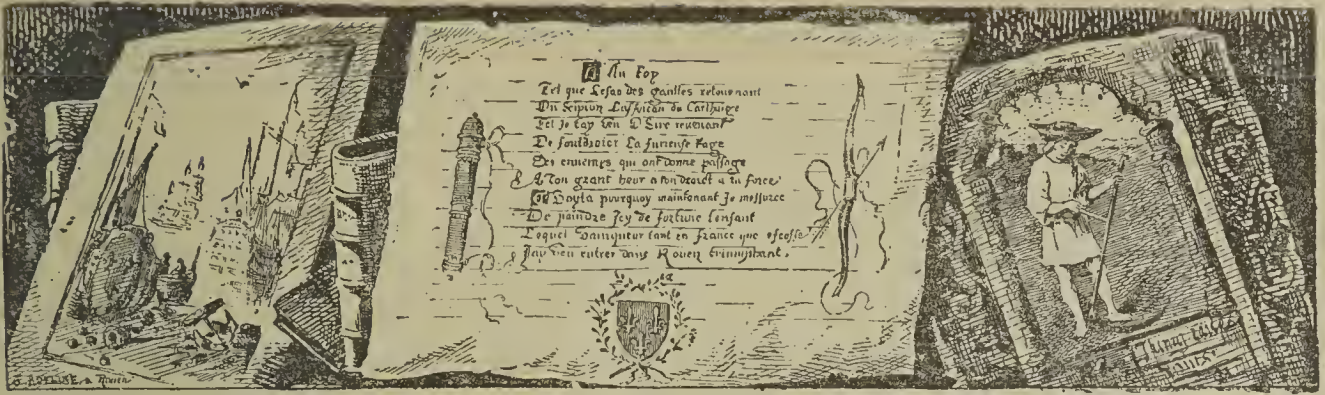 Au Roy
Tel que Cesar des gaulles retournant
Ou Scipion Laffrican de Carthaige
Tel Je tay veu O Sire revenant
De fouldroier La furieuse Rage
Des ennemys qui ont donne passage
A Ton grant heur a ton droict a ta force
Voyla pourquoy maintenant Je mefforce
De paindre Icy de fortune lenfant
Lequel vainqueur tant en france que escosse
Jay veu entrer dans Rouen triumphant.
J. ADELINE